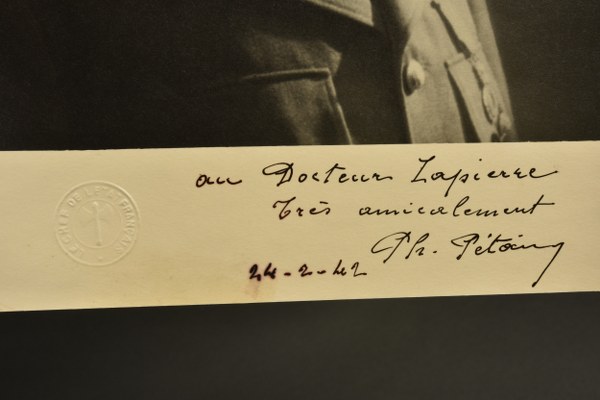 LE CHEF DE L'ETAT FRANÇAIS
au Docteur Lapierre
Très amicalement
Ph. Pétain
24-2-42